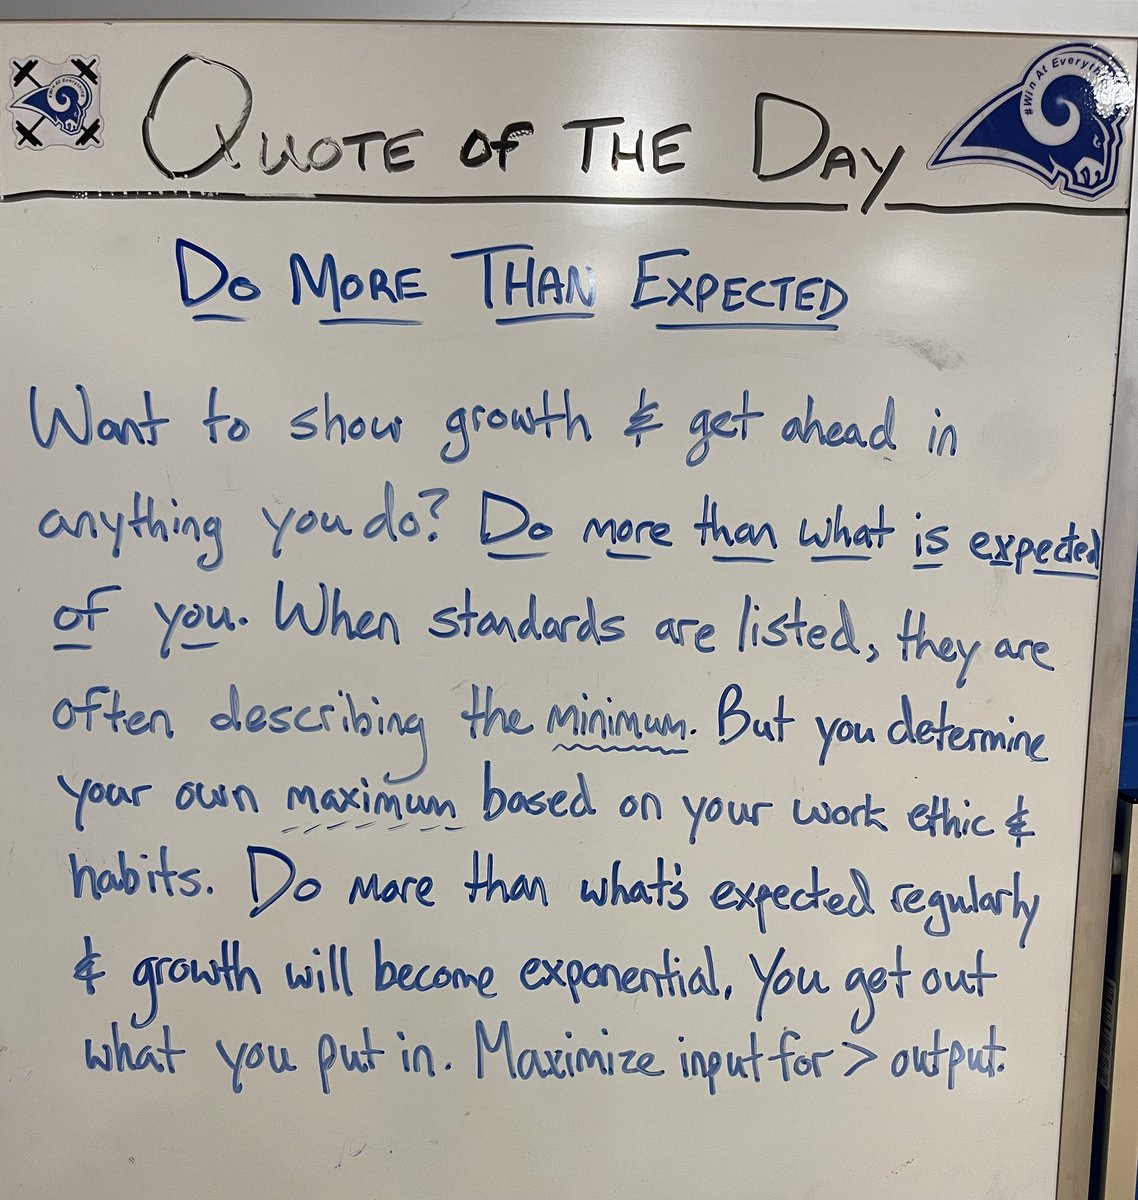 #Win At Everything
Quote of The Day
#Win At Everything
Do More Than Expected
Want to show growth & get ahead in
anything you do? Do more than what is expected
of you. When standards are listed, they are
often describing the minimum. But you determine
your own maximum based on your work ethic &
habits. Do more than what's expected regularly
& growth will become exponential. You get out
what you put in. Maximize input for > output.